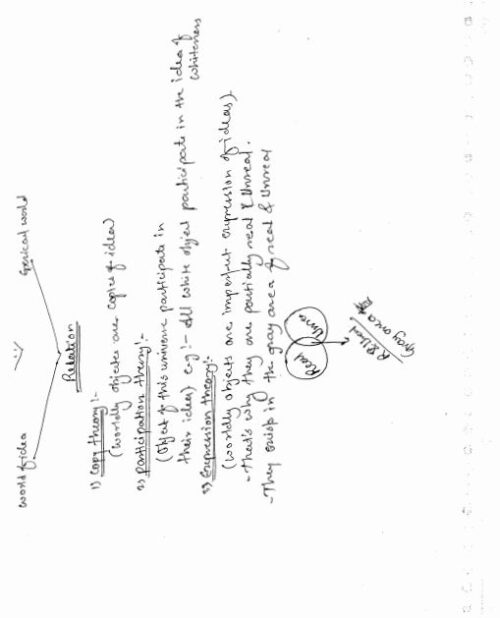 World of idea Empirical world
Relation
1) Copy theory :-
(Worldly objects are copies of idea)
2) Participation theory :-
(Object of this universe participate in
their idea) eg :- All white object participate in the idea of
whiteness
3) Expression theory :-
(Worldly objects are imperfect expression of ideas).
- That's why they are partially real & Unreal.
- They exist in the gray area of real & Unreal
Real Unreal
Gray area